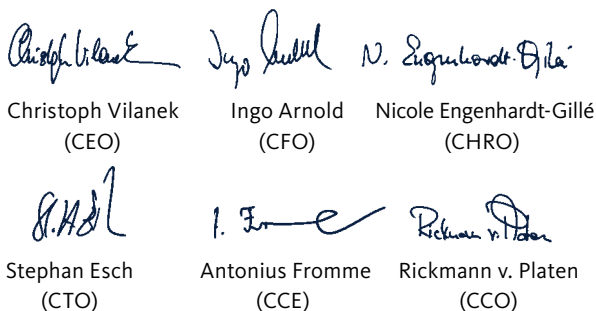 Christoph Vilanek Ingo Arnold N. Engenhardt-Gillé
Christoph Vilanek Ingo Arnold Nicole Engenhardt-Gillé
(CEO) (CFO) (CHRO)
Rickmann v. Platen
Stephan Esch Antonius Fromme Rickmann v. Platen
(CTO) (CCE) (CCO)